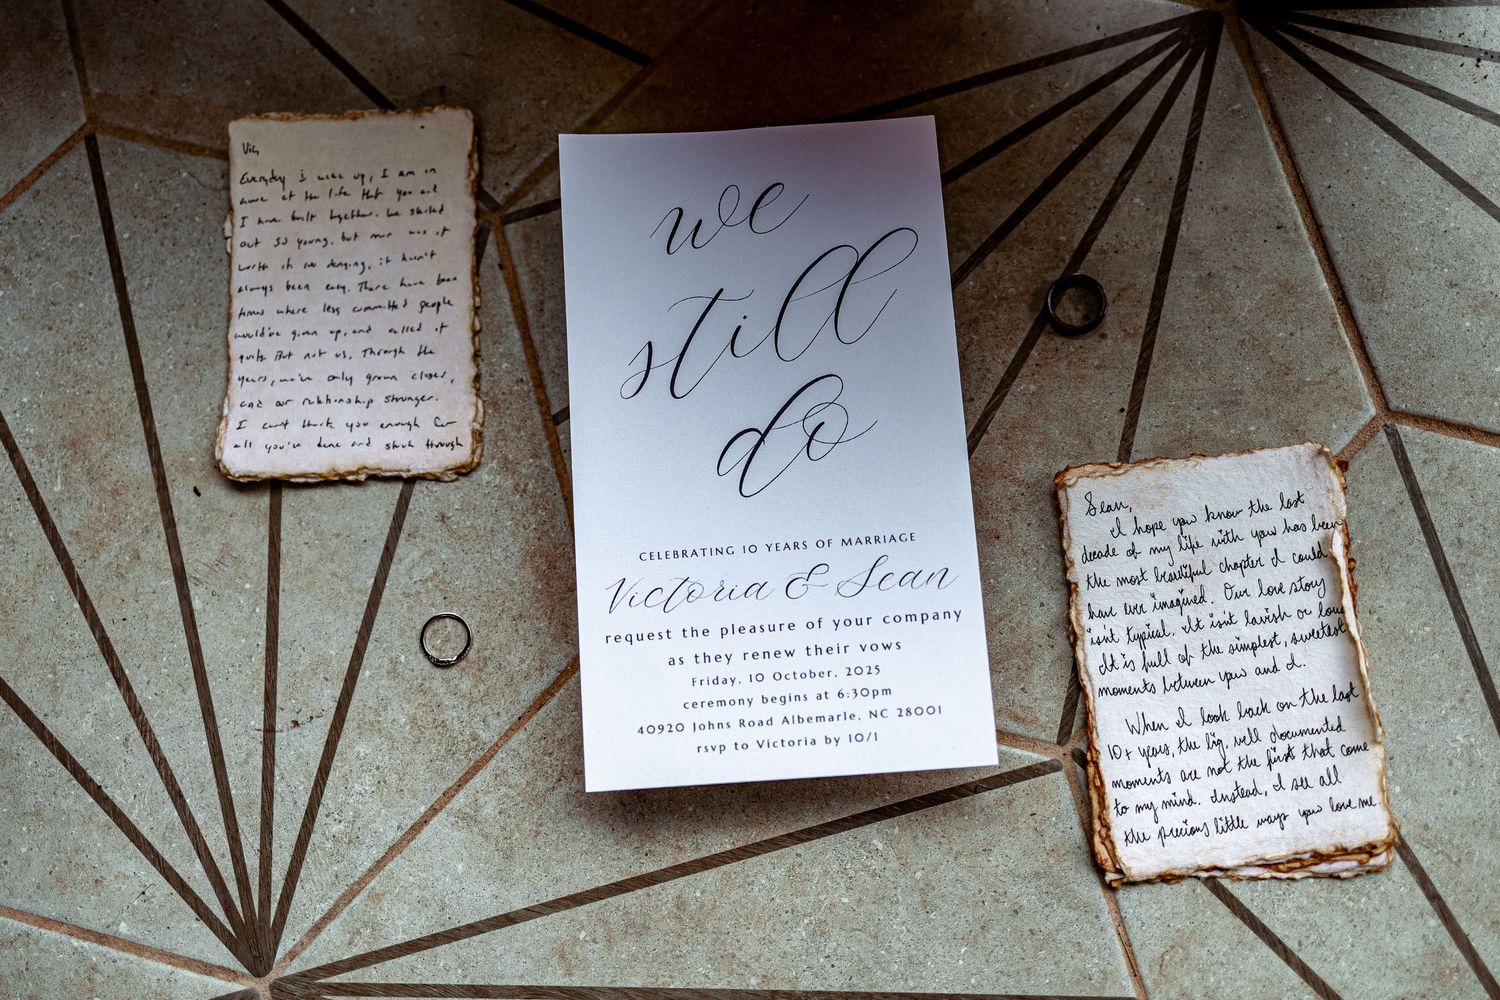 Vic,
Everyday i wake up, I am in
awe at the life that you and
I have built together. We started
out so young, but man was it
worth it. No denying, it hasn't
always been easy. There have been
times where less committed people
would've given up, and called it
quits. But not us. Through the
years, we've only grown closer,
and our relationship stronger.
I can't thank you enough for
all you've done and stuck through
we
still
do
CELEBRATING 10 YEARS OF MARRIAGE
Victoria & Sean
request the pleasure of your company
as they renew their vows
Friday, 10 October, 2025
ceremony begins at 6:30pm
40920 Johns Road Albemarle, NC 28001
rsvp to Victoria by 10/1
Sean,
I hope you know the last
decade of my life with you has been
the most beautiful chapter I could
have ever imagined. Our love story
isn't typical. It isn't lavish or
It is full of the simplest, sweetest
moments between you and I.
When I look back on the last
10+ years, the big, well documented
moments are not the first that come
to my mind. Instead, I see all
the precious little ways you love me.